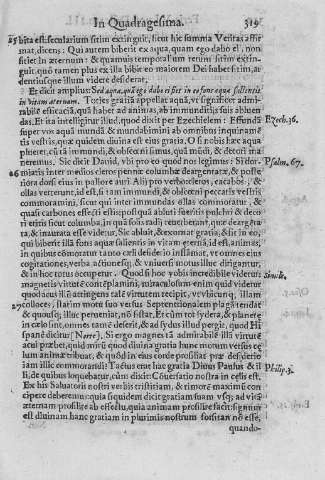 In Quadragesima. 319
25 bita est: secularium sitim extinguit, sicut hîc summa Veritas affir
mat, dicens: Qui autem biberit ex aqua, quam ego dabo ei, non
sitiet in æternum: & quamuis temporalium rerum sitim extin-
guit, quò tamen plus ex illa bibit eo maiorem Dei habet sitim, ar-
dentiusque illum videre desiderat.
Et dicit amplius: Sed aqua, quã ego dabo ei fiet in eo fons aquæ salientis
in vitam æternam. Toties gratiã appellat aquã, vt significet admi-
rabilẽ efficaciã, quã habet ad animas, ab immunditijs suis abluen
das. Et ita intelligitur illud, quod dixit per Ezechielem: Effundã Ezech. 36.
super vos aquã mundã & mundabimini ab omnibus inquinamẽ
tis vestris, quæ quidem diuina est eius gratia. O si nobis hæc aqua
plueret, cũ tã immundi, & obscœni simus, quã mũdi, & decori ma
neremus. Sic dicit Dauid, vbi pro eo quod nos legimus: Si dor- Psalm. 67.
26 miatis inter medios cleros pennæ columbæ deargentatæ, & poste
riora dorsi eius in pallore auri: Alij pro verbo cleros, cacabos, &
ollas verterunt, id est, si tam immundi, & obscœni peccatis vestris
commoramini, sicut qui inter immundas ollas commorantur, &
quasi carbones effecti estis: postquã abluti fueritis pulchri & deco
ri eritis sicut columba, in qua solis radij reuerberant, quæ deargẽta
ta, & inaurata esse videtur. Sic abluit, & exornat gratia, & sit in eo,
qui biberit illã fons aquæ salientis in vitam æternã, id est, animas,
in quibus cõmoratur tanto cæli desiderio inflãmat, vt omnes eius
cogitationes, verba actionesq;, & vniuersi motus illuc dirigantur,
& in hoc totus occupetur. Quod si hoc vobis incredibile videtur: Simile.
magnetis virtutẽ contẽplamini, miraculosum enim quid videtur
quod acus illũ attingens talẽ virtutem recipit, vt vbicunq; illam
27 colloces, statim motũ suo versus Septentrionalem plagã tendat
& quousq; illuc perueniat, nõ sistat. Et cũm tot sydera, & planetæ
in cælo sint, omnes tamẽ deserit, & ad sydus illud pergit, quod Hi
spanè dicitur: [Norte]. Si ergo magnes tã admirabilẽ illi virtutẽ
acui præbet, quid mirũ quod diuina gratia hunc motum versus cæ
lum animæ tribuat, & quòd in eius corde prosiliat præ desyderio
iam illic commorandi? Tactus erat hac gratia Diuus Paulus & il
li, de quibus loquebatur, cũm dixit: Cõuersatio nostra in cælis est. Philip. 3.
Ex his Saluatoris nostri verbis tristitiam, & timorẽ maximũ con
cipere deberemus: quia siquidem dicit gratiam suam vsq; ad vitã
æternam prosilire ab effectu, quia animam prosilire facit: signum
est diuinam hanc gratiam in plurimis nostrum forsitan nõ esse,
quando-